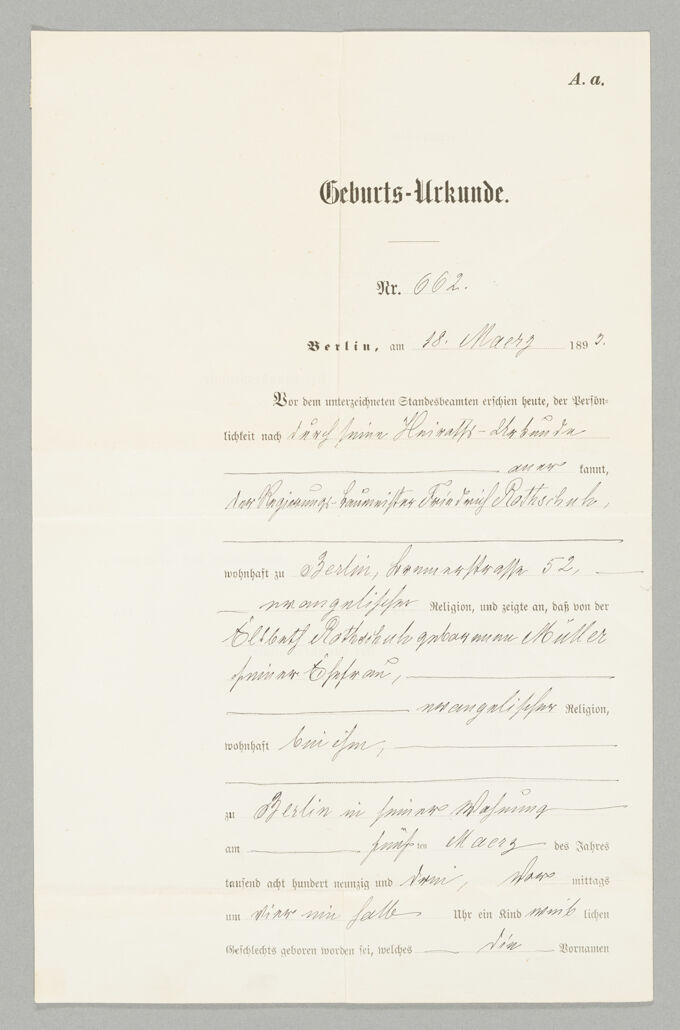 A. a.
Geburts-Urkunde.
Nr. 662.
Berlin, am 18. Maerz 1893.
Vor dem unterzeichneten Standesbeamten erschien heute, der Persön-
lichkeit nach durch seine Heiraths-Urkunde
aner kannt,
der Regierungs-Baumeister Friedrich Rothschuh,
wohnhaft zu Berlin, 52,
evangelischer Religion, und zeigte an, daß von der
Elsbeth Rothschuh geborenen Müller
seiner Ehefrau,
evangelischer Religion,
wohnhaft bei ihm,
zu Berlin in seiner Wohnung
am fünf ten Maerz des Jahres
tausend acht hundert neunzig und drei, Vor mittags
um vier ein halb Uhr ein Kind weib lichen
Geschlechts geboren worden sei, welches die Vornamen